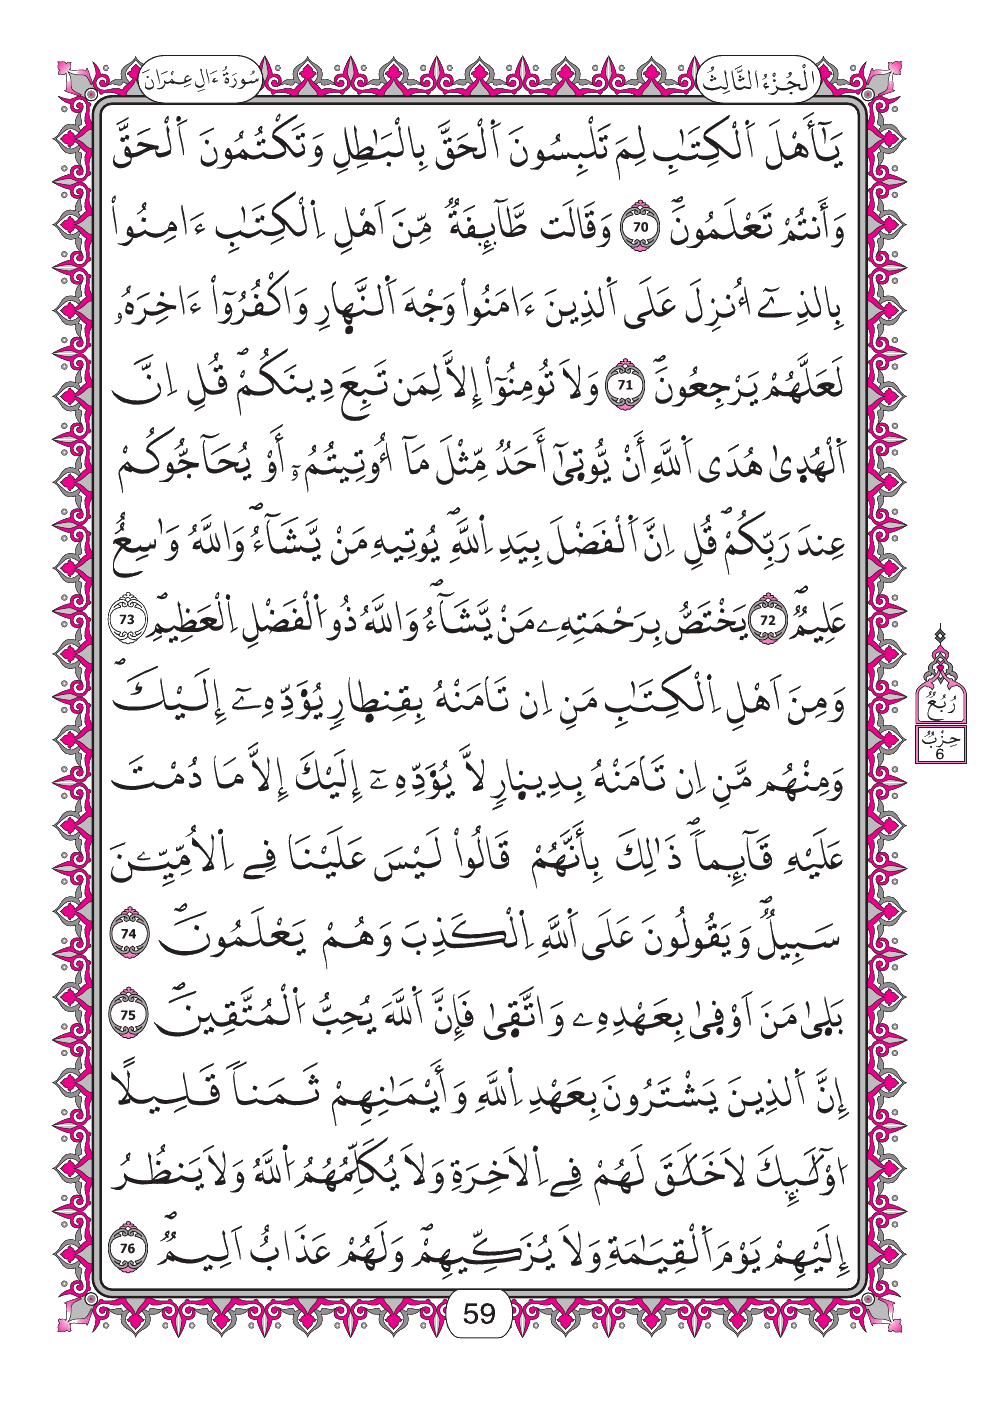 الْجُزْءُ الثَّالِثُ
سُورَةُ ءَالِ عِمْرَانَ
يَٰٓأَهْلَ اَ۬لْكِتَٰبِ لِمَ تَلْبِسُونَ اَ۬لْحَقَّ بِالْبَٰطِلِ وَتَكْتُمُونَ اَ۬لْحَقَّ
وَأَنتُمْ تَعْلَمُونَۖ 70 وَقَالَت طَّآئِفَةٞ مِّنَ اَهْلِ اِ۬لْكِتَٰبِ ءَامِنُواْ
بِالذِےٓ أُنزِلَ عَلَى اَ۬لذِينَ ءَامَنُواْ وَجْهَ اَ۬لنَّهارِ وَاكْفُرُوٓاْ ءَاخِرَهُۥ
لَعَلَّهُمْ يَرْجِعُونَۖ 71 وَلَا تُومِنُوٓاْ إِلَّا لِمَن تَبِعَ دِينَكُمْۖ قُلِ اِنَّ
اَ۬لْهُد۪يٰ هُدَى اَ۬للَّهِ أَنْ يُّوت۪يٰٓ أَحَدٞ مِّثْلَ مَآ أُوتِيتُمُۥٓ أَوْ يُحَآجُّوكُمْ
عِندَ رَبِّكُمْۖ قُلِ اِنَّ اَ۬لْفَضْلَ بِيَدِ اِ۬للَّهِۖ يُوتِيهِ مَنْ يَّشَآءُۖ وَاللَّهُ وَٰسِعٌ
عَلِيمٞۖ 72 يَخْتَصُّ بِرَحْمَتِهِۦ مَنْ يَّشَآءُۖ وَاللَّهُ ذُو اُ۬لْفَضْلِ اِ۬لْعَظِيمِۖ 73
وَمِنَ اَهْلِ اِ۬لْكِتَٰبِ مَنِ اِن تَامَنْهُ بِقِنط۪ارِ يُؤَدِّهِۦٓ إِلَيْكَۖ
وَمِنْهُم مَّنِ اِن تَامَنْهُ بِدِين۪ارِ لَّا يُؤَدِّهِۦٓ إِلَيْكَ إِلَّا مَا دُمْتَ
عَلَيْهِ قَآئِماٗۖ ذَٰلِكَ بِأَنَّهُمْ قَالُواْ لَيْسَ عَلَيْنَا فِے اِ۬لُامِّيِّـۧنَ
سَبِيلٞۖ وَيَقُولُونَ عَلَى اَ۬للَّهِ اِ۬لْكَذِبَ وَهُمْ يَعْلَمُونَۖ 74
بَل۪يٰ مَنَ اَوْف۪يٰ بِعَهْدِهِۦ وَاتَّق۪يٰ فَإِنَّ اَ۬للَّهَ يُحِبُّ اُ۬لْمُتَّقِينَۖ 75
إِنَّ اَ۬لذِينَ يَشْتَرُونَ بِعَهْدِ اِ۬للَّهِ وَأَيْمَٰنِهِمْ ثَمَناٗ قَلِيلًا
اُوْلَٰٓئِكَ لَا خَلَٰقَ لَهُمْ فِے اِ۬لَاخِرَةِ وَلَا يُكَلِّمُهُمُ اُ۬للَّهُ وَلَا يَنظُرُ
إِلَيْهِمْ يَوْمَ اَ۬لْقِيَٰمَةِ وَلَا يُزَكِّيهِمْۖ وَلَهُمْ عَذَابٌ اَلِيمٞۖ 76
رُبُعُ
حِزْبُ
6
59